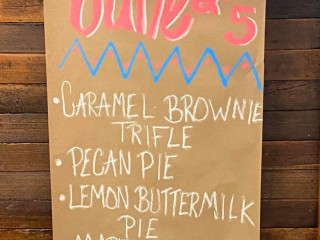 5
• CARAMEL BROWNIE
TRIFLE
• PECAN PIE
• LEMON BUTTERMILK
PIE